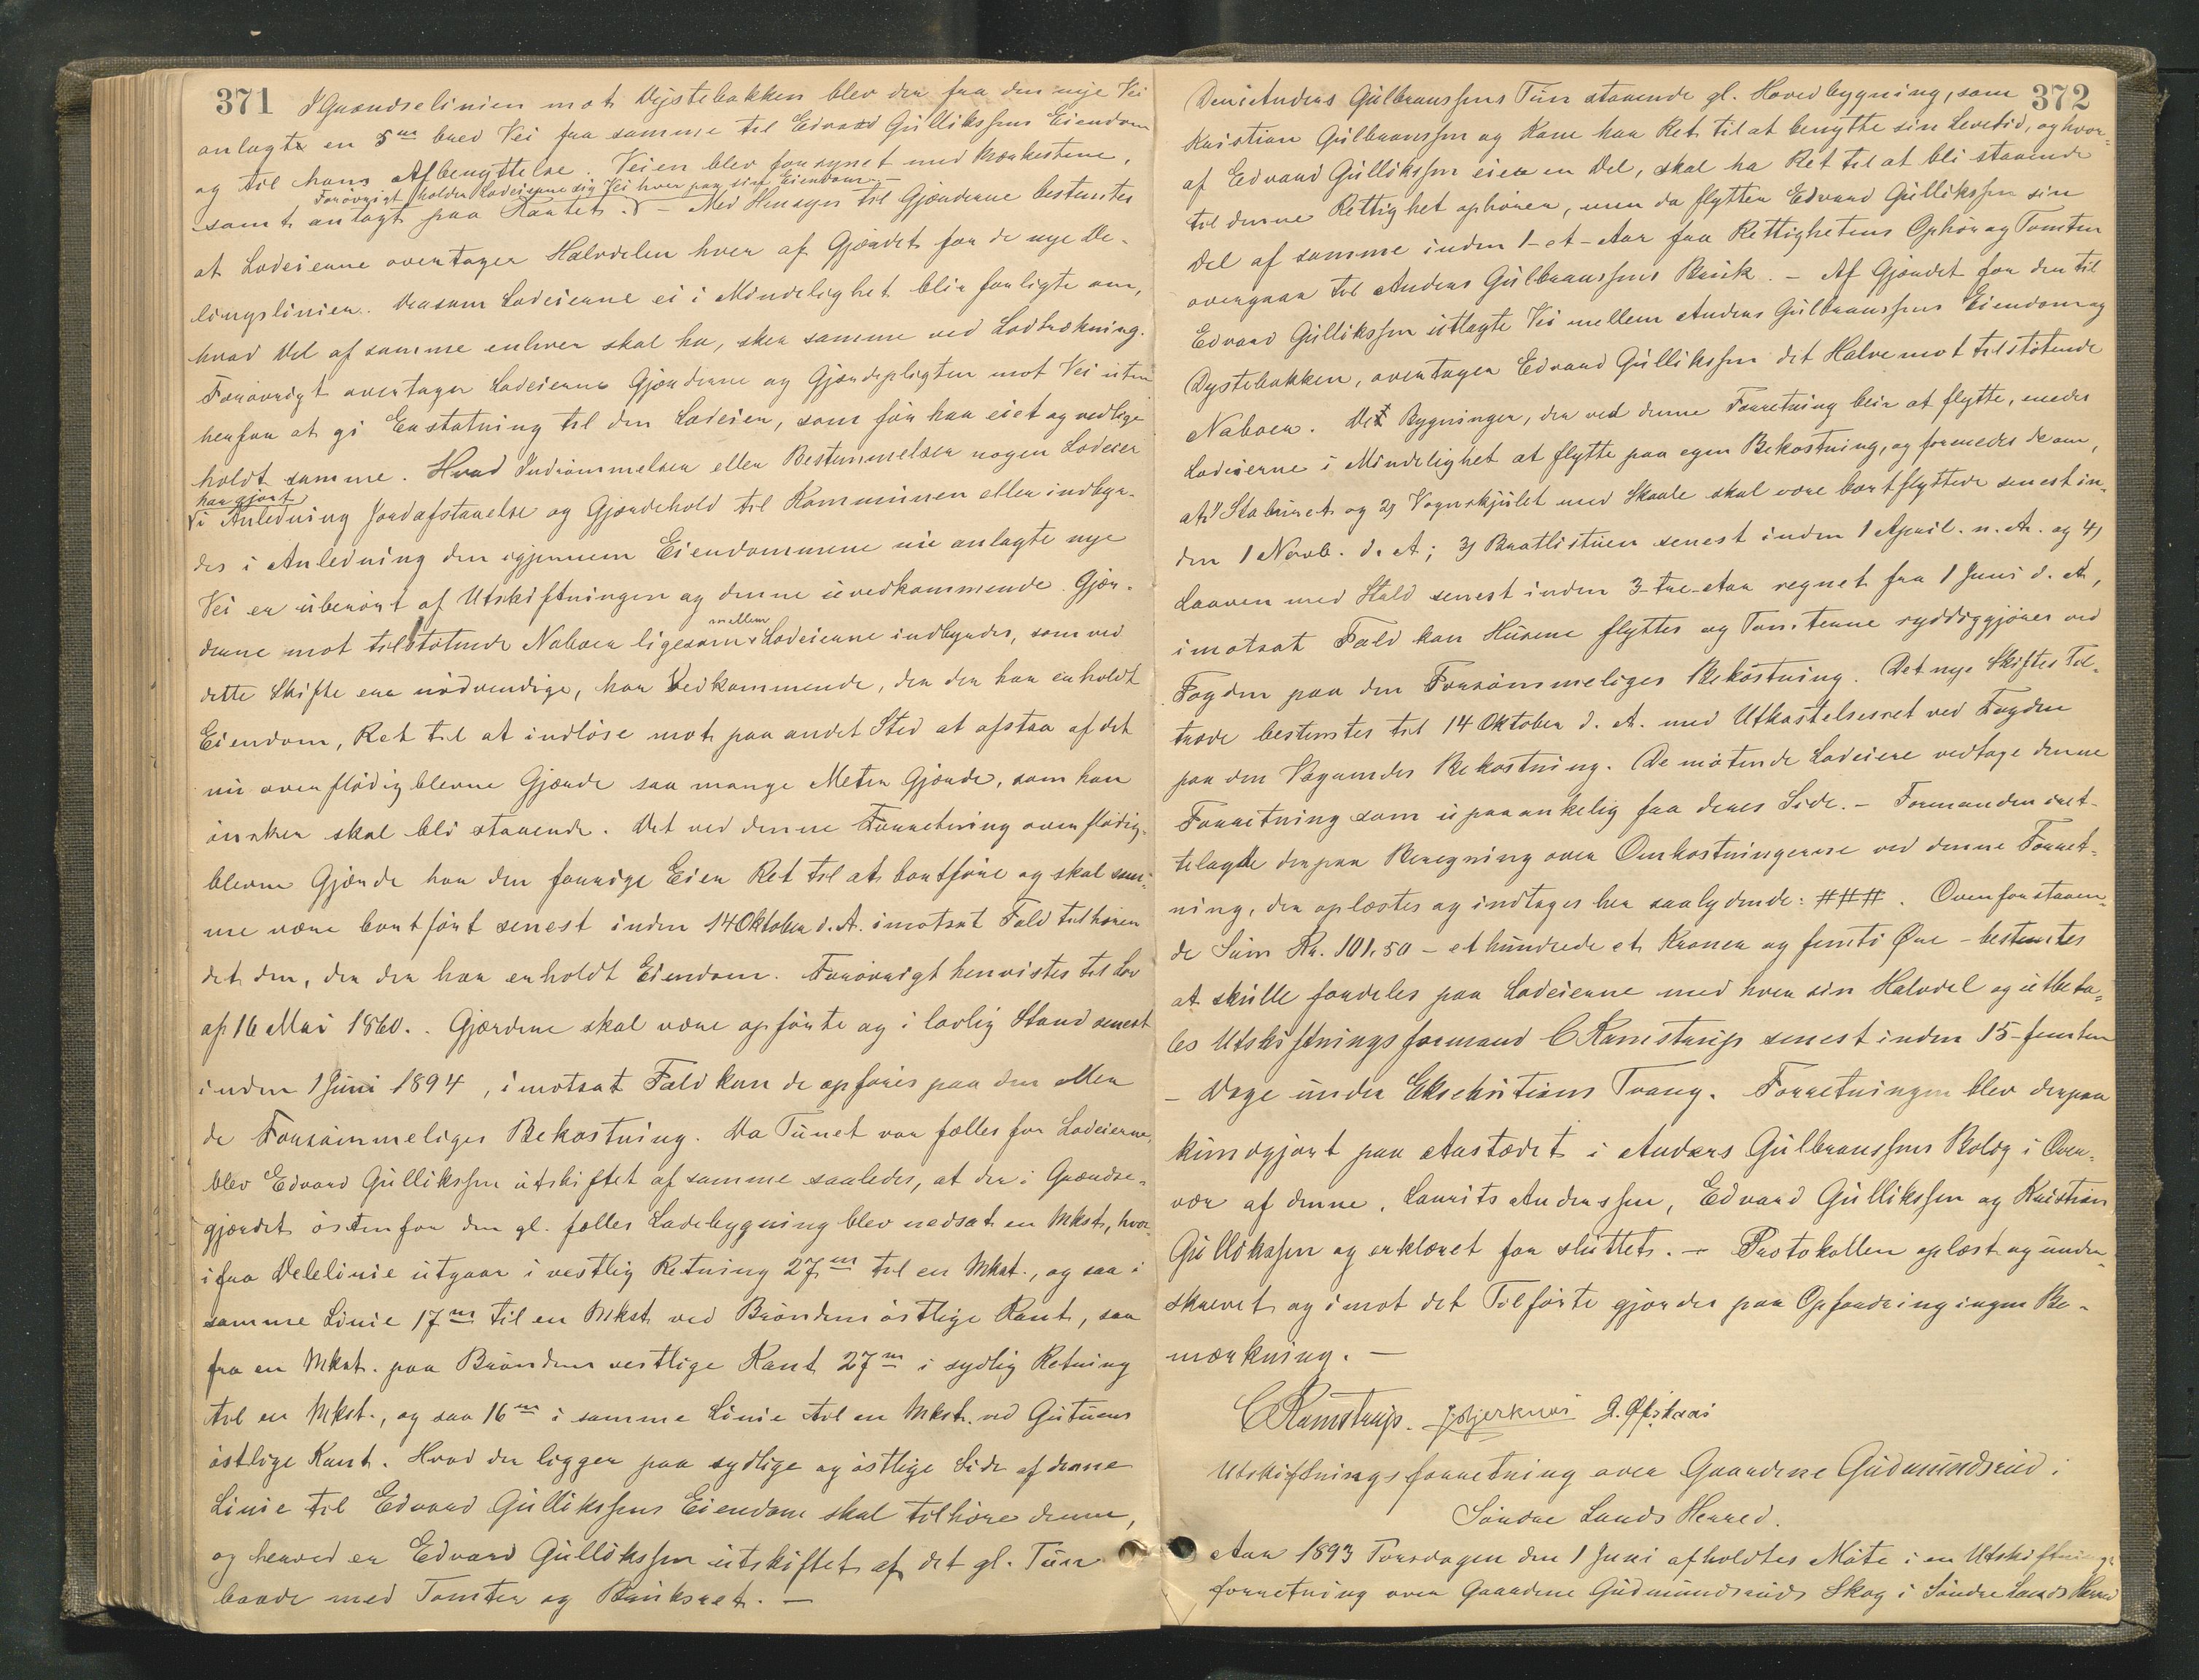 371
I Grændselinien mot Dystebakken blev der fra den nye Vei
anlagt en 5m bred Vei fra samme til Edvard Gulliksens Eiendom
og til hans Afbenyttelse. Veien blev forsynet med Mærkestene,
Forøvrigt holder Lodeierne sig Vei hver paa sin Eiendom. –
samt anlagt paa Kartet. – Med Hensyn til Gjærderne bestemtes
at Lodeierne overtager Halvdelen hver af Gjærdet for de nye De-
lingslinier. Dersom Lodeierne ei i Mindelighet blir forligte om,
hvad Del af samme enhver skal ha, sker samme ved Lodtrækning.
Forøvrigt overtager Lodeierne Gjærderne og Gjærdepligten mot Vei uten
herfor at gi Erstatning til den Lodeier, som før har eiet og vedlige
holdt samme. Hvad Indrømmelser eller Bestemmelser nogen Lodeier
har gjort
i Anledning Jordafstaaelse og Gjærdehold til Kommunen eller indbyr-
des i Anledning den igjennem Eiendommene nu anlagte nye
Vei er uberørt af Utskiftningen og denne uvedkommende. Gjær-
mellem
derne mot tilstøtende Naboer ligesom Lodeierne indbyrdes, som ved
dette Skifte ere nødvendige, har Vedkommende, der der har erholdt
Eiendom, Ret til at indløse mot paa andet Sted at afstaa af det
nu overflødigblevne Gjærde saa mange Meter Gjærde, som han
ønsker skal bli staaende. Det ved denne Forretning overflødig-
blevne Gjærde har den forrige Eier Ret til at bortføre og skal sam-
me være bortført senest inden 14 Oktober d. A. imotsat Fald tilhører
det den, der der har erholdt Eiendom. Forøvrigt henvistes til Lov
af 16 Mai 1860. . Gjærdene skal være opførte og i lovlig Stand senest
inden 1 Juni 1894, imotsat Fald kan de opføres paa den eller
de Forsømmeliges Bekostning. Da Tunet var fælles for Lodeierne,
blev Edvard Gulliksen utskiftet af samme saaledes, at der i Grændse-
gjærdet østenfor den gl. fælles Ladebygning blev nedsat en Mkst., hvor
ifra Delelinie utgaar i vestlig Retning 27m til en Mkst., og saa i
samme Linie 17m til en Mkst. ved Brøndens østlige Kant, saa
fra en Mkst. paa Brøndens vestlige Kant 27m i sydlig Retning
til en Mkst., og saa 16m i samme Linie til en Mkst. ved Gutuens
østlige Kant. Hvad der ligger paa sydlige og østlige Side af denne
Linie til Edvard Gulliksens Eiendom skal tilhøre denne,
og herved er Edvard Gulliksen utskiftet af det gl. Tun
baade med Tomter og Bruksret. –
372
Den i Anders Gulbranssens Tun staaende gl. Hovedbygning, som
Kristian Gulbranssen og Kone har Ret til at benytte sin Levetid, og hvor-
af Edvard Gulliksen eier en Del, skal ha Ret til at bli staaende
til denne Rettighet ophører, men da flytter Edvard Gulliksen sin
Del af samme inden 1-et-Aar fra Rettighetens Ophør og Tomten
overgaar til Anders Gulbranssens Bruk. – Af Gjærdet for den til
Edvard Gulliksen utlagte Vei mellem Anders Gulbranssens Eiendom og
Dystebakken, overtager Edvard Gulliksen det Halve mot tilstøtende
Naboer. De Bygninger, der ved denne Forretning blir at flytte, enedes
Lodeierne i Mindelighet at flytte paa egen Bekostning, og forenedes de om,
at 1) Staburet og 2) Vognskjulet med Skaale skal være bortflyttede senest in-
den 1 Novb. d. A.; 3) Bratlistuen senest inden 1 April n. A. og 4)
Laaven med Stald senest inden 3-tre-Aar regnet fra 1 Juni d. A.,
imotsat Fald kan Husene flyttes og Tomterne ryddiggjøres ved
Fogden paa den Forsømmeliges Bekostning. Det nye Skiftes Til-
træde bestemtes til 14 Oktober d. A. med Utkastelsesret ved Fogden
paa den Vægrendes Bekostning. De møtende Lodeiere vedtoge denne
Forretning som upaaankelig fra deres Side. – Formanden ret-
telagde derpaa Beregning over Omkostningerne ved denne Forret-
ning, der oplæstes og indtages her saalydende: ###. Ovenforstaaen-
de Sum Kr. 101.50 – et hundrede et Kroner og femti Øre – bestemtes
at skulle fordeles paa Lodeierne med hver sin Halvdel og utbeta-
les Utskiftningsformand C Ramstrup senest inden 15-femten
– Dage under Eksekutions Tvang. Forretningen blev derpaa
kundgjort paa Aastedet i Anders Gulbranssens Bolig i Over-
vær af denne, Laurits Anderssen, Edvard Gulliksen og Kristian
Gulliksen og erklæret for sluttet. – Protokollen oplæst og under-
skrevet og imot det Tilførte gjordes paa Opfordring ingen Be-
mærkning. –
C Ramstrup.
Utskiftningsforretning over Gaardene Gudmundsrud i
Søndre Lands Herred.
Aar 1893 Torsdagen den 1 Juni afholdtes Møte i en Utskiftnings
forretning over Gaardene Gudmundsruds Skog i Søndre Lands Herred